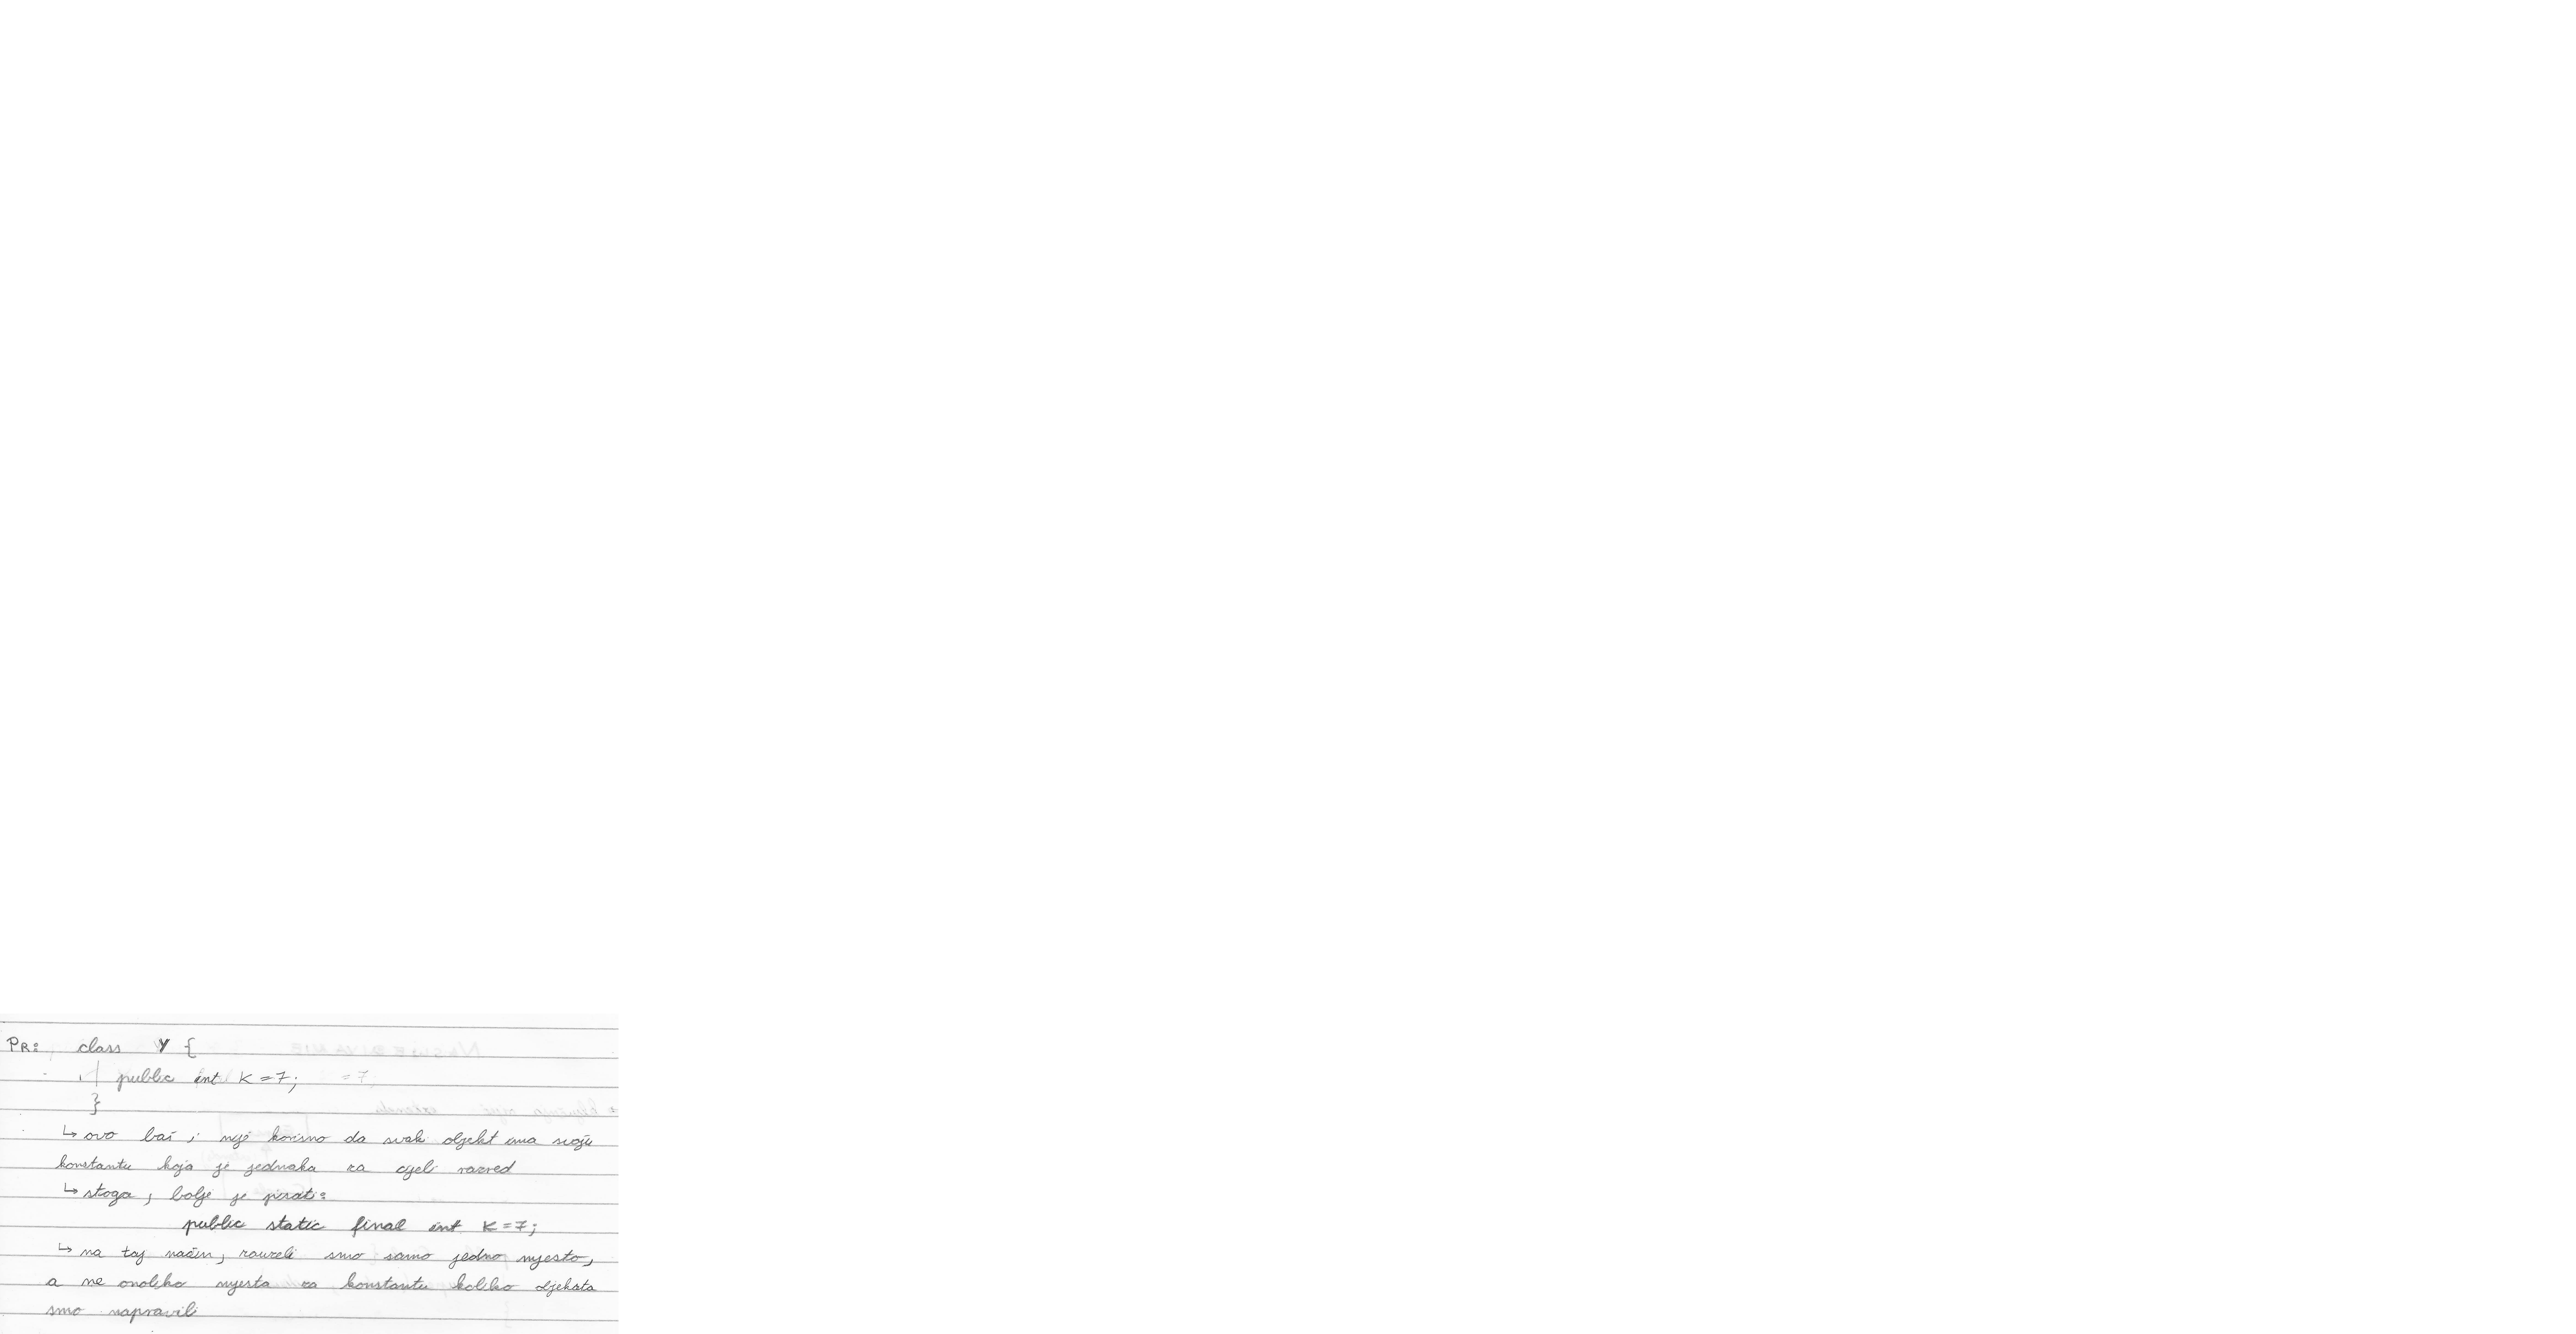 PR: class Y {
public int K = 7;
}
↳ ovo baš i nije korisno da svaki objekt ima svoju
konstantu koja je jednaka za cijeli razred
↳ stoga, bolje je pisati:
public static final int K = 7;
↳ na taj način, zauzeli smo samo jedno mjesto,
a ne onoliko mjesta za konstantu koliko objekata
smo napravili